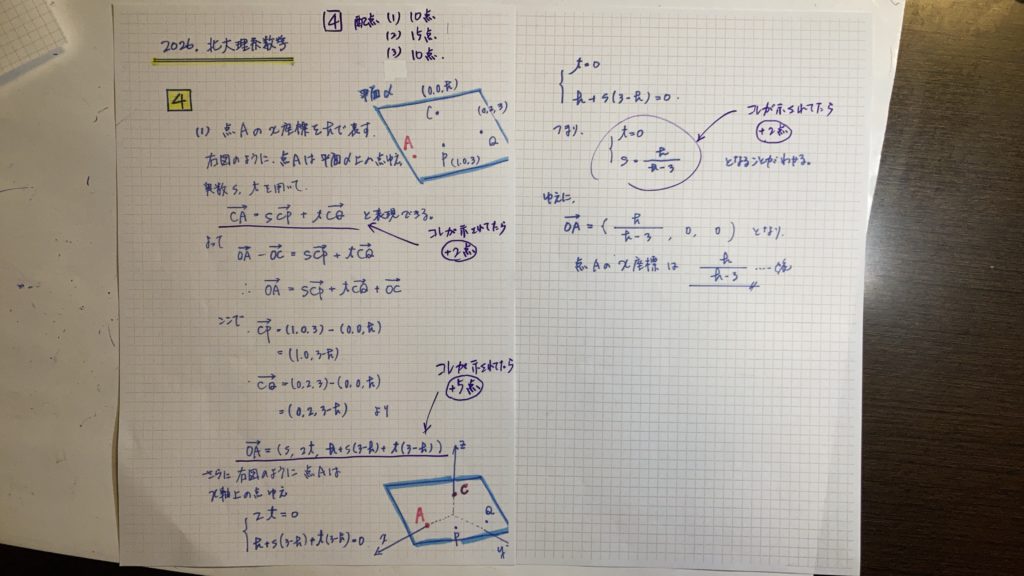 2026. 北大理系数学
4 配点 (1) 10点
(2) 15点
(3) 10点.
4
平面α (0,0,k)
C
(0,2,3)
Q
A
P(1,0,3)
(1) 点Aのx座標をkで表す.
右図のように、点Aは平面α上の点ゆえ
実数s, tを用いて.
CA = sCP + tCQ と表現できる。
コレが示されてたら
+2点
よって
OA - OC = sCP + tCQ
∴ OA = sCP + tCQ + OC
ここで.
CP = (1,0,3) - (0,0,k)
= (1,0,3-k)
CQ = (0,2,3) - (0,0,k)
= (0,2,3-k) より
コレが示されてたら
+5点
OA = (s, 2t, k+s(3-k)+t(3-k))
さらに右図のように点Aは
x軸上の点ゆえ
2t=0
k+s(3-k)+t(3-k)=0
z
C
A
Q
P
x
y
t=0
k+s(3-k)=0.
つまり.
t=0
s = k/(k-3)
となることがわかる。
コレが示されてたら
+2点
ゆえに.
OA = (k/(k-3), 0, 0) となり.
点Aのx座標は k/(k-3)